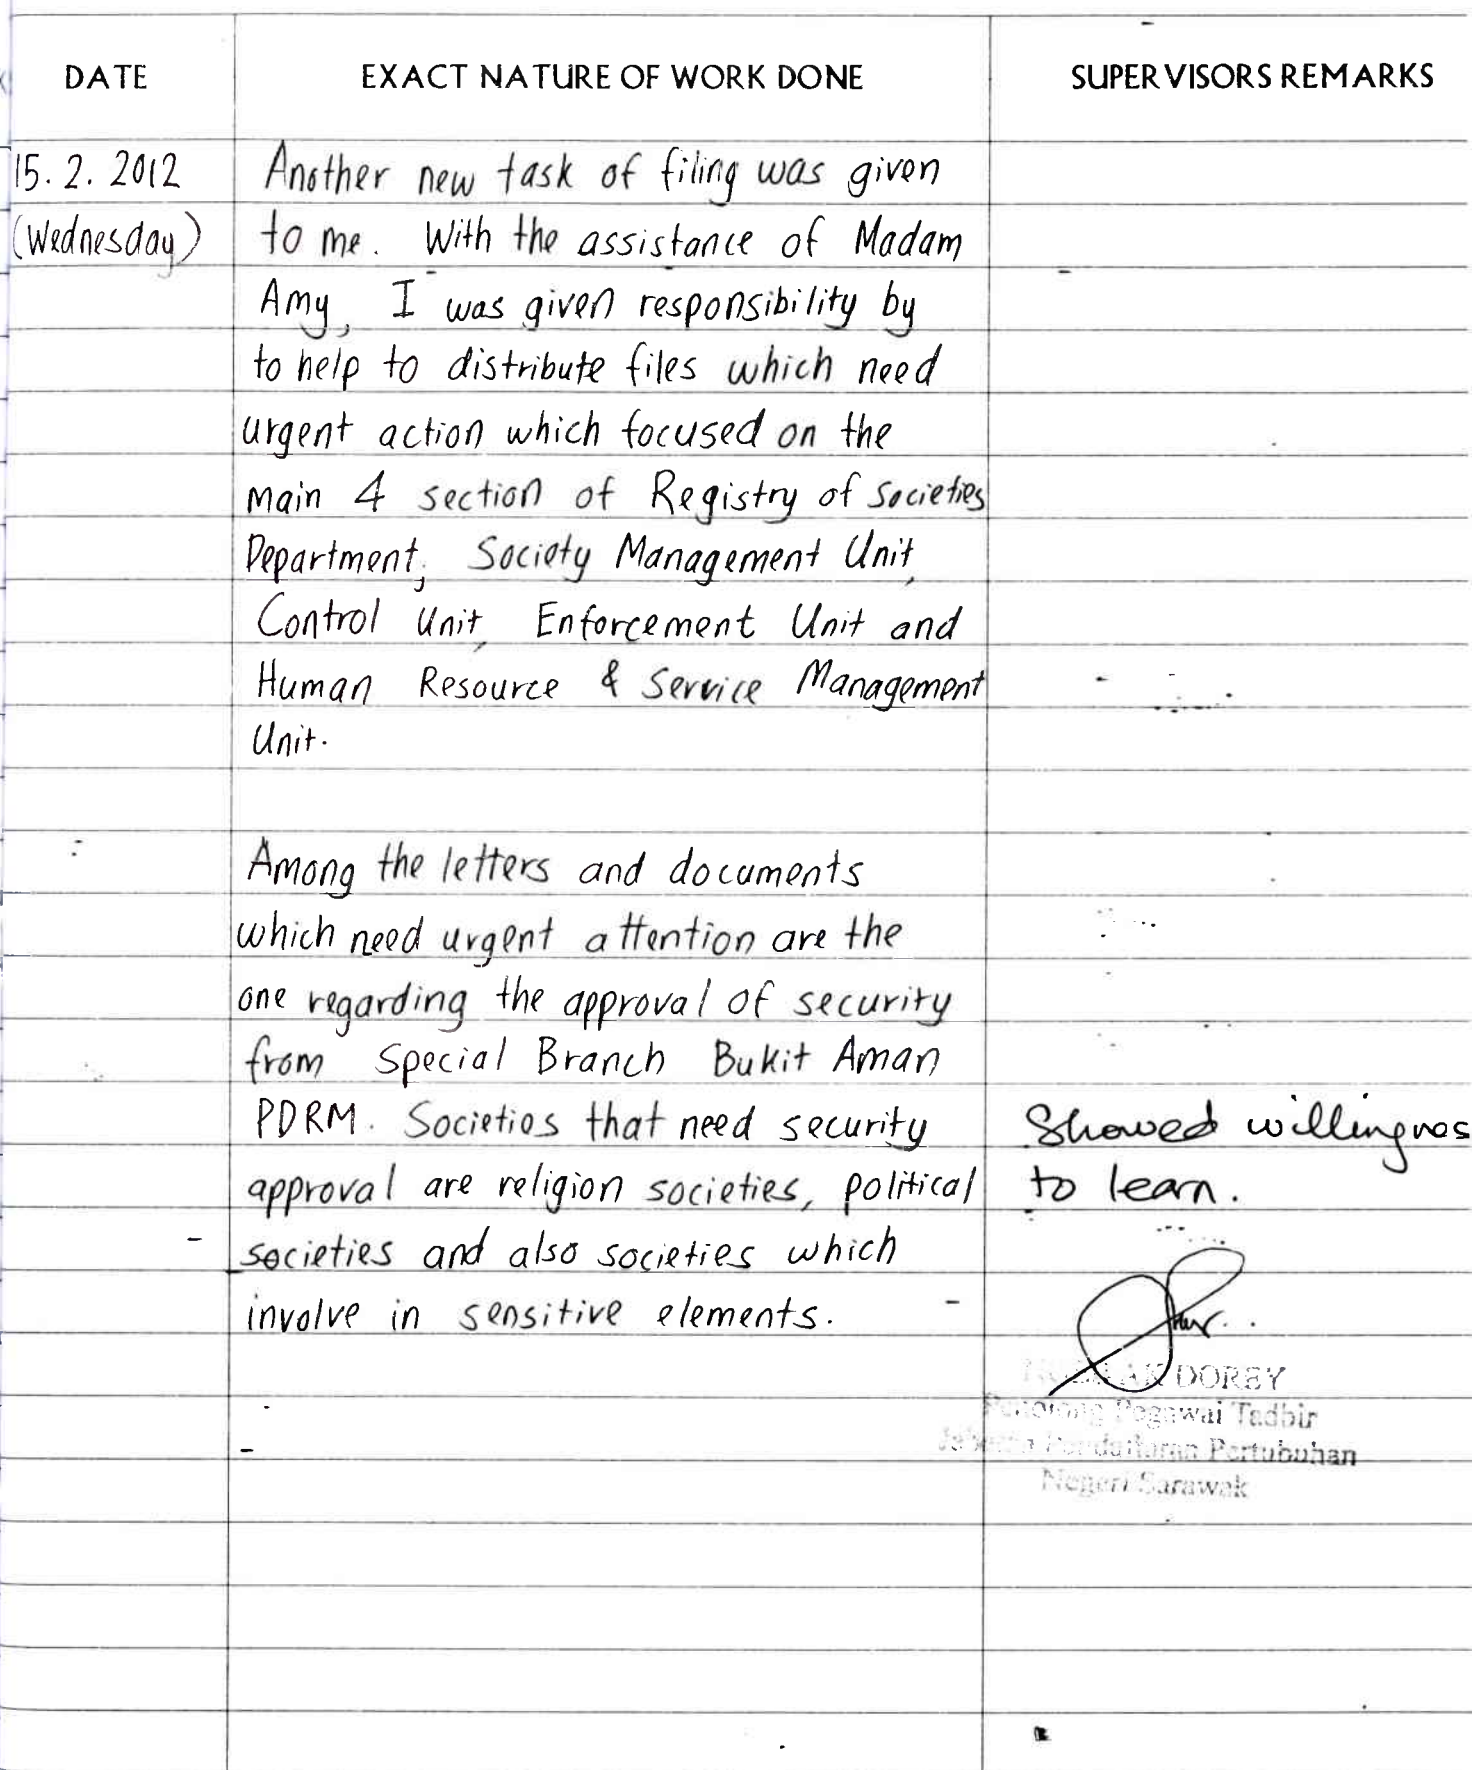 DATE EXACT NATURE OF WORK DONE SUPERVISORS REMARKS
15.2.2012 Another new task of filing was given
(Wednesday) to me. With the assistance of Madam
Amy, I was given responsibility by
to help to distribute files which need
urgent action which focused on the
main 4 section of Registry of Societies
Department, Society Management Unit,
Control Unit, Enforcement Unit and
Human Resource & Service Management
Unit.
Among the letters and documents
which need urgent attention are the
one regarding the approval of security
from Special Branch Bukit Aman
PDRM. Societies that need security
approval are religion societies, political
societies and also societies which
involve in sensitive elements.
Showed willingnes
to learn.
AK DOREY
Penolong Pegawai Tadbir
Jabatan Pendaftaran Pertubuhan
Negeri Sarawak